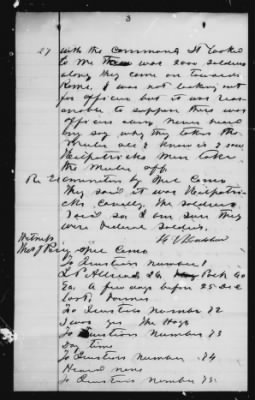 3
27 with the Command It looked
to me there was 2000 soldiers
along they come on towards
Rome. I was not looking out
for officers but it was reas
onable to suppose there was
officers along never heard
any say why they taken the
mules all I know is I saw
Kilpatricks men take
the mules off
Re Examined by Spec Coms
They said it was Kilpatri
cks Cavalry. The soldiers
said so I am sure they
were Federal soldiers.
Witness
Thos J Perry Spec Coms
To Question number 1
26 Polk Co
Ga. a few days before 25 Dec
1864 Farmer
To Question Number 72
I was yes The Hogs
To Question Number 73
Day time
To Question Number 74
Heard none
To Question Number 75